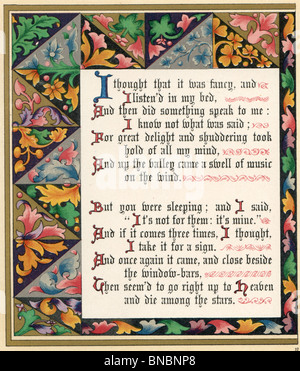 I thought that it was fancy, and
I listen'd in my bed,
And then did something speak to me:
I know not what was said;
For great delight and shuddering took
hold of all my mind,
And up the valley came a swell of music
on the wind.
But you were sleeping; and I said,
"It's not for them: it's mine."
And if it comes three times, I thought,
I take it for a sign.
And once again it came, and close beside
the window-bars,
Then seem'd to go right up to Heaven
and die among the stars.
alamy
BNBNP8
www.alamy.com